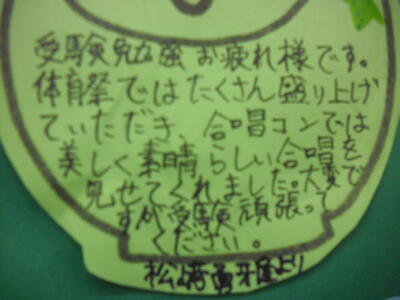 受験勉強お疲れ様です。
体育祭ではたくさん盛り上げ
ていただき、合唱コンでは
美しく素晴らしい合唱を
見せてくれました。大変で
すが受験頑張って
ください。
松崎 より